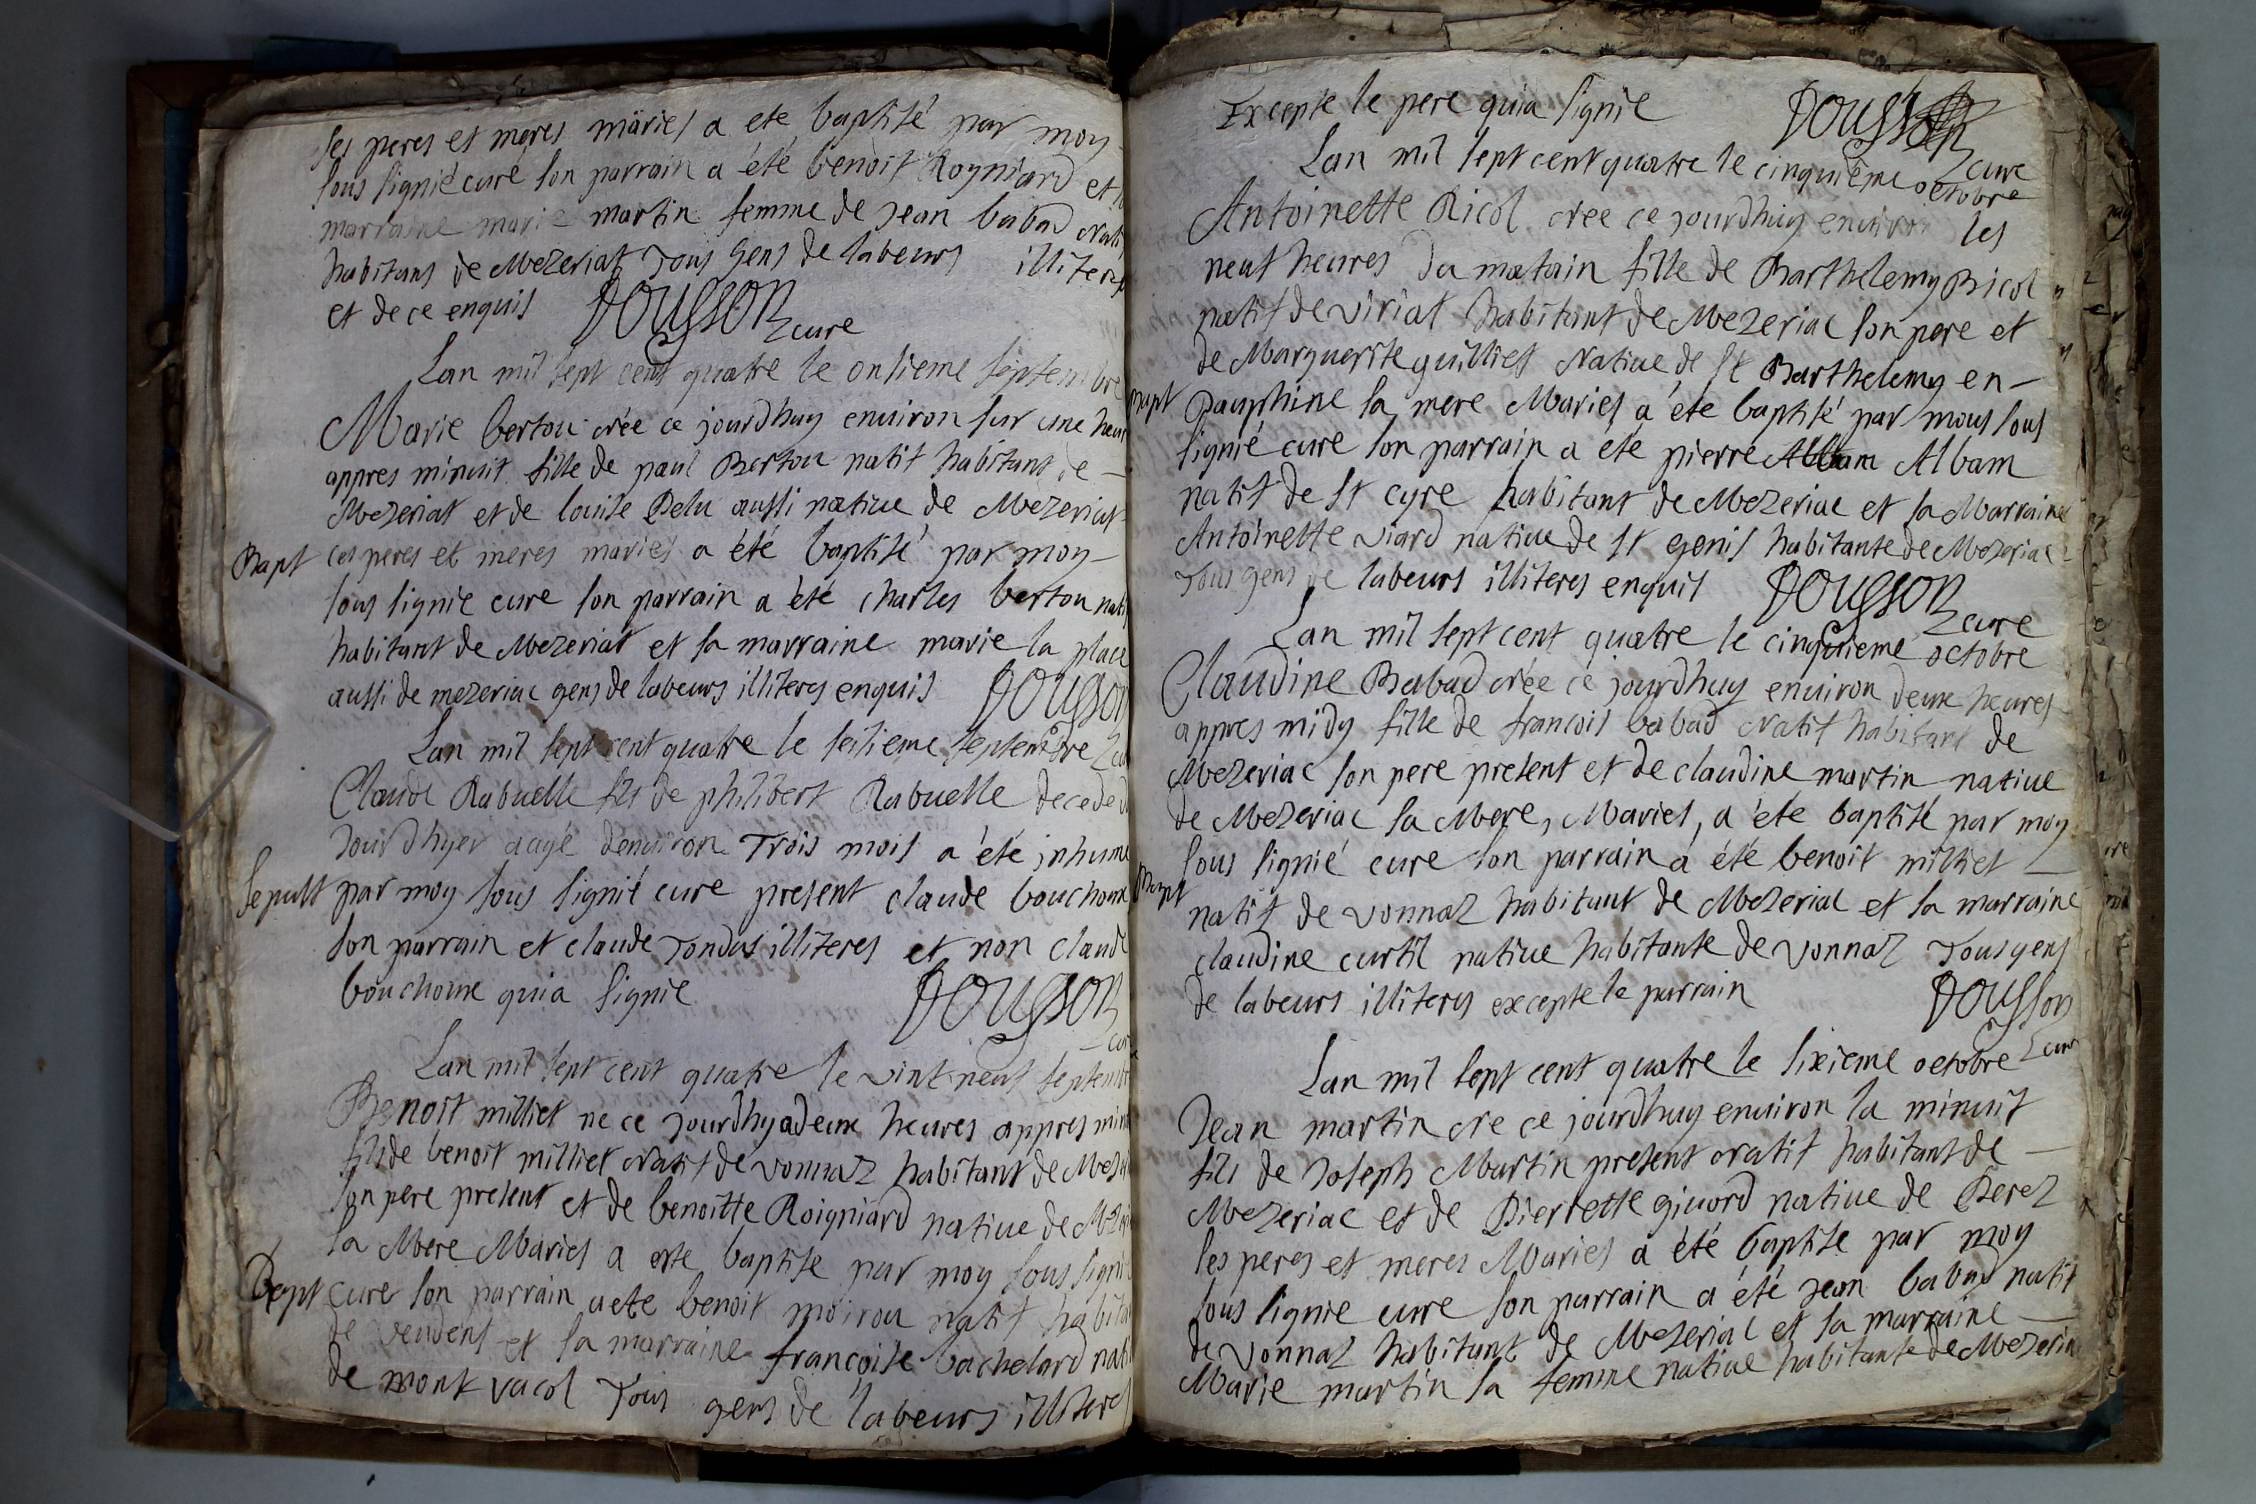 ses peres et meres mariés a ete baptisé par moy
sous signié curé son parrain a été benoit Rogniard et
marraine marie martin femme de jean babad
habitans de Mezeriat Tous gens de labeurs
et de ce enquis DOUSSON curé
Lan mil sept cent quatre le onsieme septembre
Marie bertou née ce jourdhuy environ sur une
appres minuit fille de paul Bertou natif habitant de
Mezeriat et de louise Pelu aussi natiue de Mezeriat
Bapt ces peres et meres mariés a été baptisé par moy
sous signie cure son parrain a été charles bertou
habitant de Mezeriat et sa marraine marie la place
aussi de mezeriac gens de labeurs illiteres enquis DOUSSON
Lan mil sept cent quatre le seisieme septembre
Claude Rabuelle fils de philibert Rabuelle decede
jourdhyer aagé denuiron Trois mois a été inhumé
Sepult par moy sous signié cure present claude bouchoux
son parrain et claude Tondus illiteres et non claude
bouchoux qui a signié DOUSSON
Lan mil sept cent quatre le vint neuf
Benoit milliet ne ce jourdhuy a deux heures appres
fils de benoit milliet natif de vonnaz habitant de
son pere present et de benoitte Roigniard natiue de
la Mere Mariés a este baptise par moy sous
Bapt cure son parrain a ete benoit moirou natif
de vendens et sa marraine francoise bachelard
de mont vacol Tous gens de labeurs illiteres
Excepte le pere qui a signie DOUSSON curé
Lan mil sept cent quatre le cinquième octobre
Antoinette Ricol née ce jourdhuy enuiron les
neuf heures du matain fille de Barthelemy Ricol
natif de viriat habitant de Mezeriac son pere et
de Marguerite guilliet Natiue de St Barthelemy en
Bapt Dauphine sa mere Mariés a été baptisé par mous sous
signié cure son parrain a été pierre Albam Albam
natif de St cyre habitant de Mezeriac et sa Marraine
Antoinette viard natiue de St genis habitante de Mezeriac
Tous gens de labeurs illiteres enquis DOUSSON cure
Lan mil sept cent quatre le cinquieme octobre
Claudine Babad née ce jourdhuy enuiron deux heures
appres midy fille de francois babad Natif habitant de
Mezeriac son pere present et de claudine martin natiue
de Mezeriac sa Mere, Mariés, a été baptisé par moy
sous signié cure son parrain a été benoit milliet
Bapt natif de vonnaz habitant de Mezeriac et sa marraine
claudine curtil natiue habitante de vonnaz Tous gens
de labeurs illiteres excepte le parrain DOUSSON cure
Lan mil sept cent quatre le sixieme octobre
Jean martin né ce jourdhuy enuiron la minuit
fils de Joseph Martin present natif habitant de
Mezeriac et de Pierrette giuord natiue de Perez
les peres et meres Mariés a été baptise par moy
sous signie cure son parrain a été jean babad natif
de vonnaz habitant de Mezeriac et sa marraine
Marie martin sa femme natiue habitante de